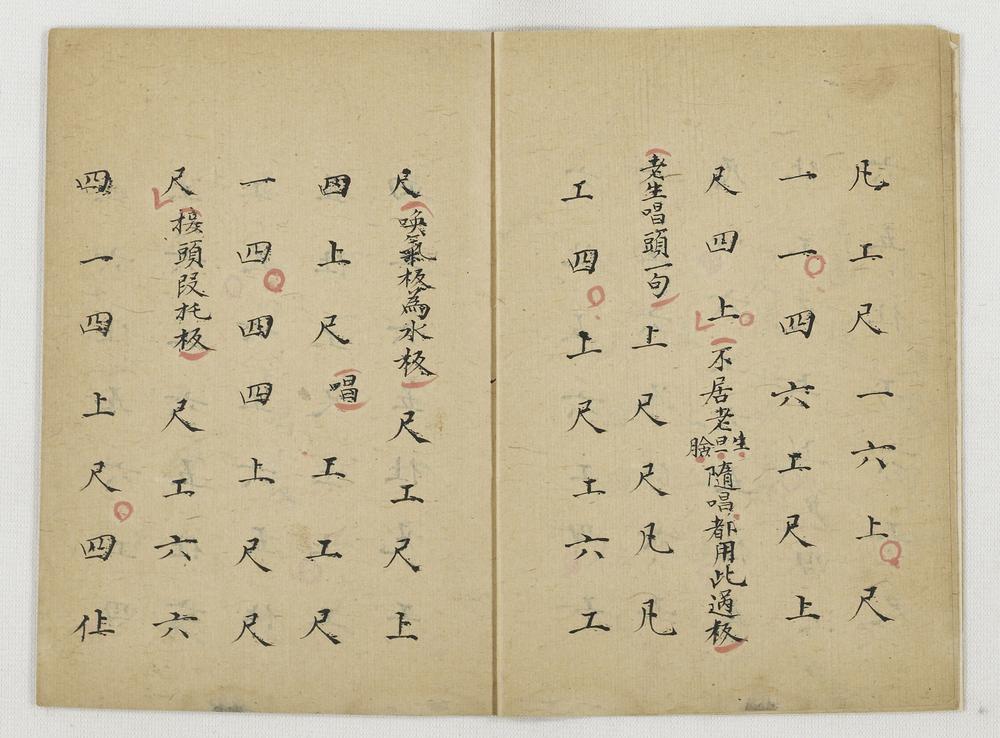 凡工尺一六上尺
一一四六工尺上
尺四上(不居老生旦臉隨唱都用此過板)
(老生唱頭一句)上尺尺凡凡
工四上尺工六工
尺(喚氣板為水板)尺工尺上
四上尺(唱)工工尺
一四四四上尺尺
尺(接頭段托板)尺工六六
四一四上尺四仩